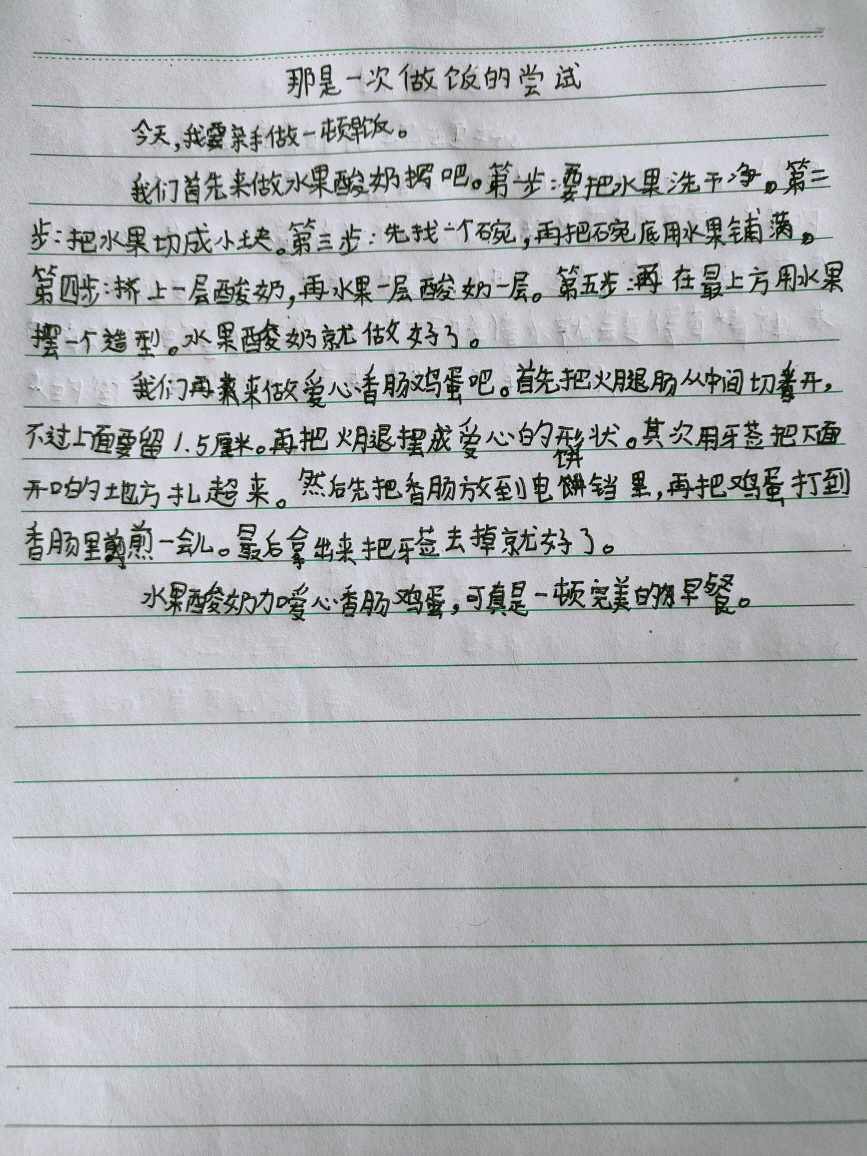 那是一次做饭的尝试
今天,我要亲手做一顿早饭。
我们首先来做水果酸奶捞吧。第一步:要把水果洗干净。第二
步:把水果切成小块。第三步:先找一个碗,再把碗底用水果铺满。
第四步:挤上一层酸奶,再水果一层酸奶一层。第五步:再在最上方用水果
摆一个造型。水果酸奶就做好了。
我们再来做爱心香肠鸡蛋吧。首先把火腿肠从中间切开,
不过上面要留1.5厘米。再把火腿摆成爱心的形状。其次用牙签把下面
开口的地方扎起来。然后先把香肠放到电饼铛里,再把鸡蛋打到
香肠里煎一会儿。最后拿出来把牙签去掉就好了。
水果酸奶加爱心香肠鸡蛋,可真是一顿完美的早餐。